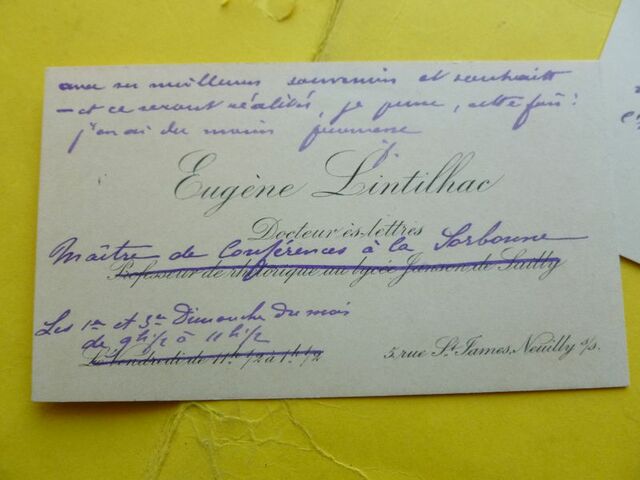 avec ses meilleurs souvenirs et souhaits
— et ce seront réalités, je pense, cette fois :
j'en ai du moins
Eugène Lintilhac
Docteur ès-lettres
Maître de Conférences à la Sorbonne
Professeur de rhétorique au lycée Janson de Sailly
Les 1er et 3e Dimanche du mois
de 9h 1/2 à 11h 1/2
Le Vendredi de 11h 1/2 à 1h 1/2
5, rue St. James, Neuilly s/s.